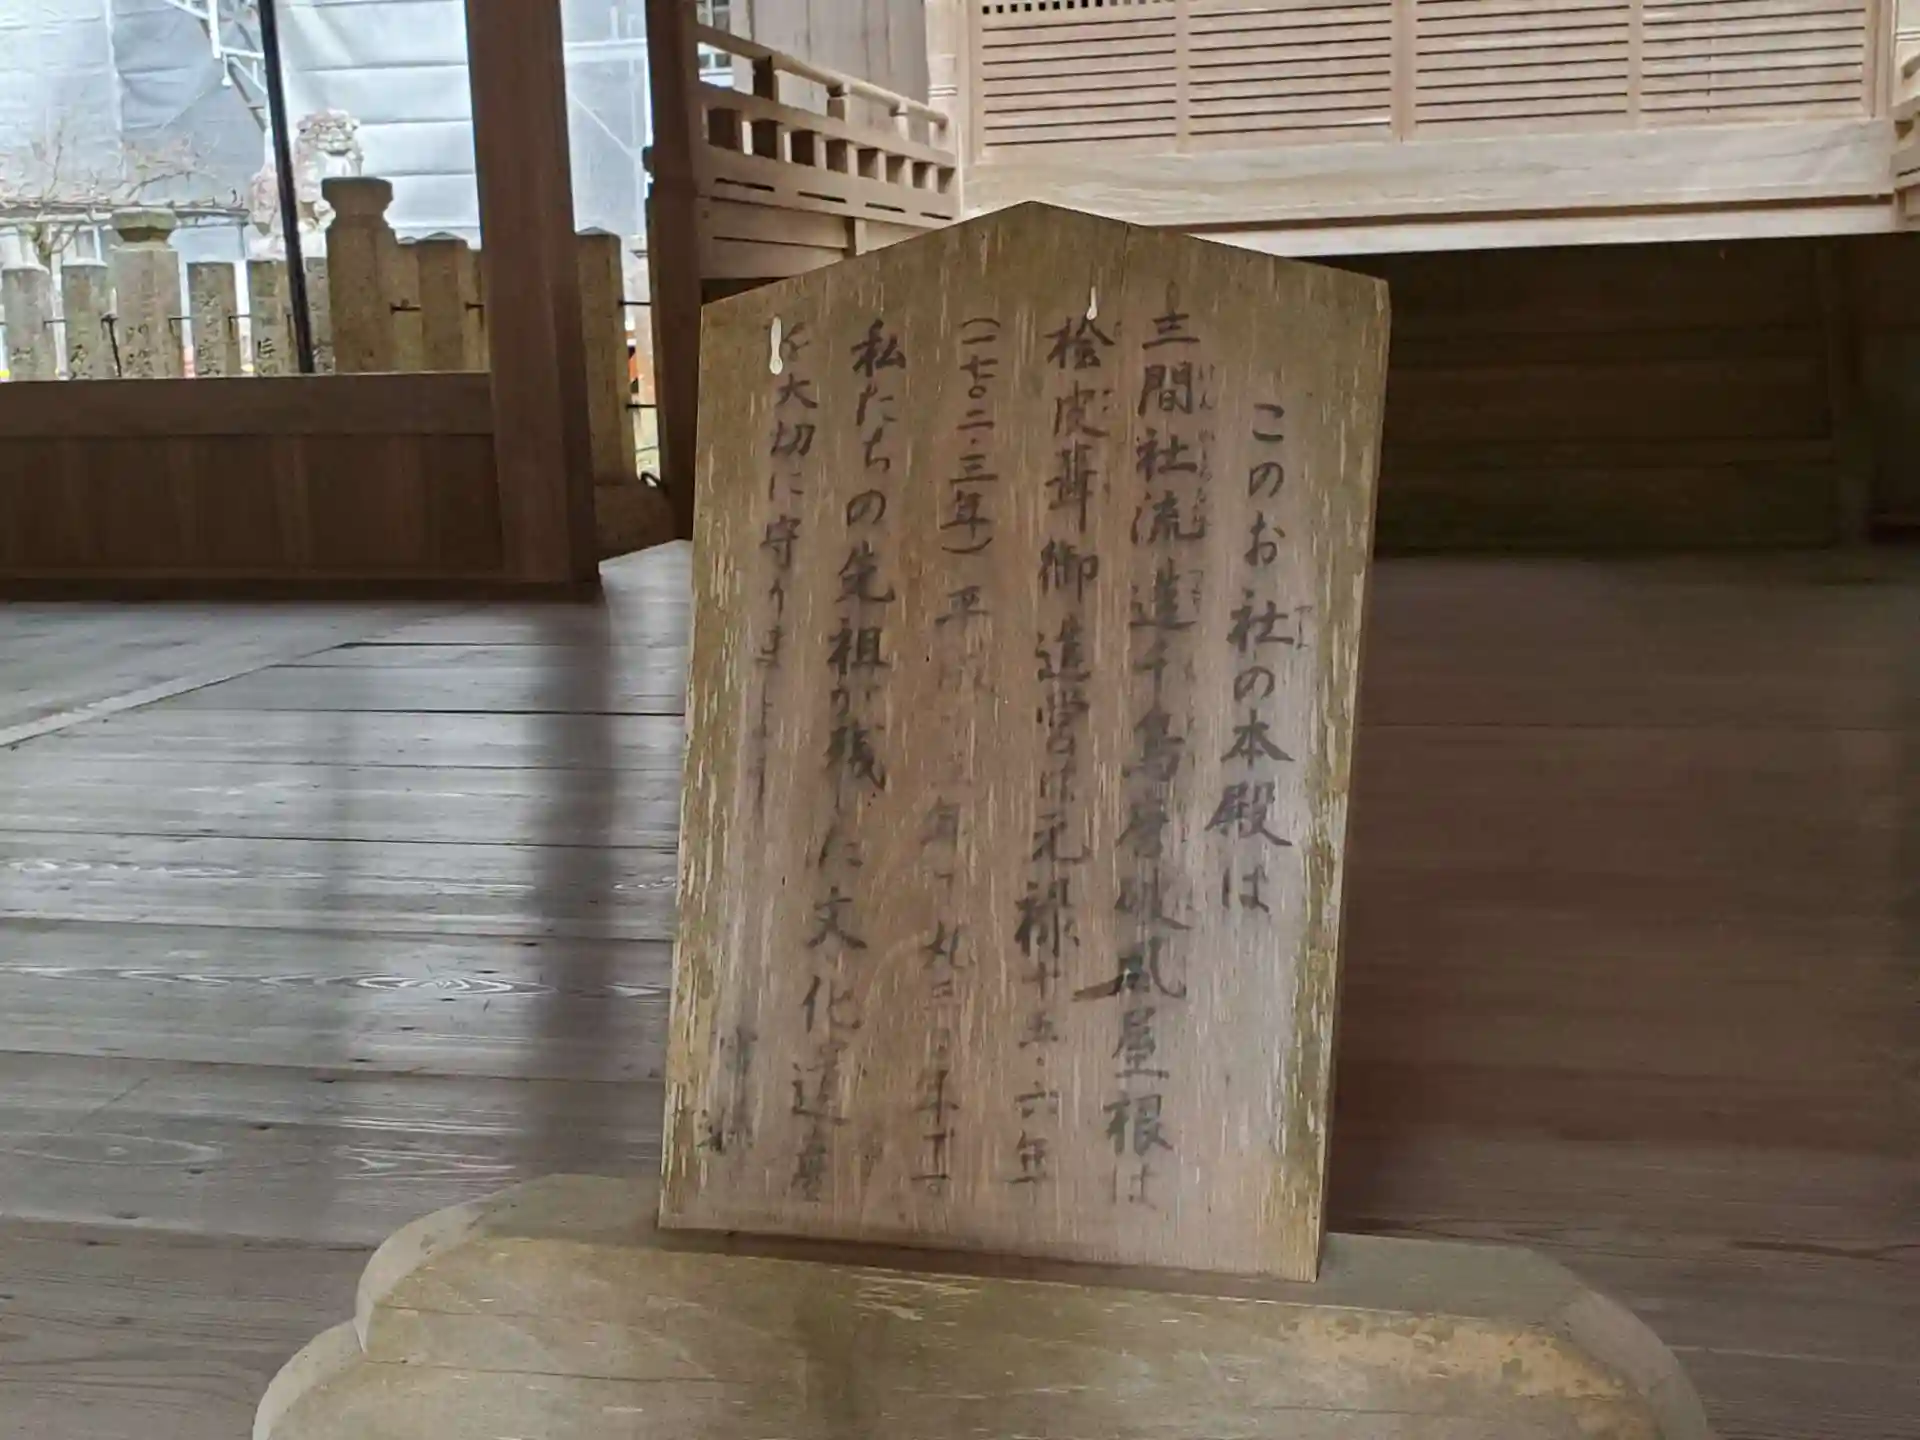 このお社の本殿は
三間社流造千鳥唐破風屋根は
桧皮葺御造営は元禄十五・六年
(一七〇二・三年)平成 年
私たちの先祖が残した文化遺産
を大切に守りましょう